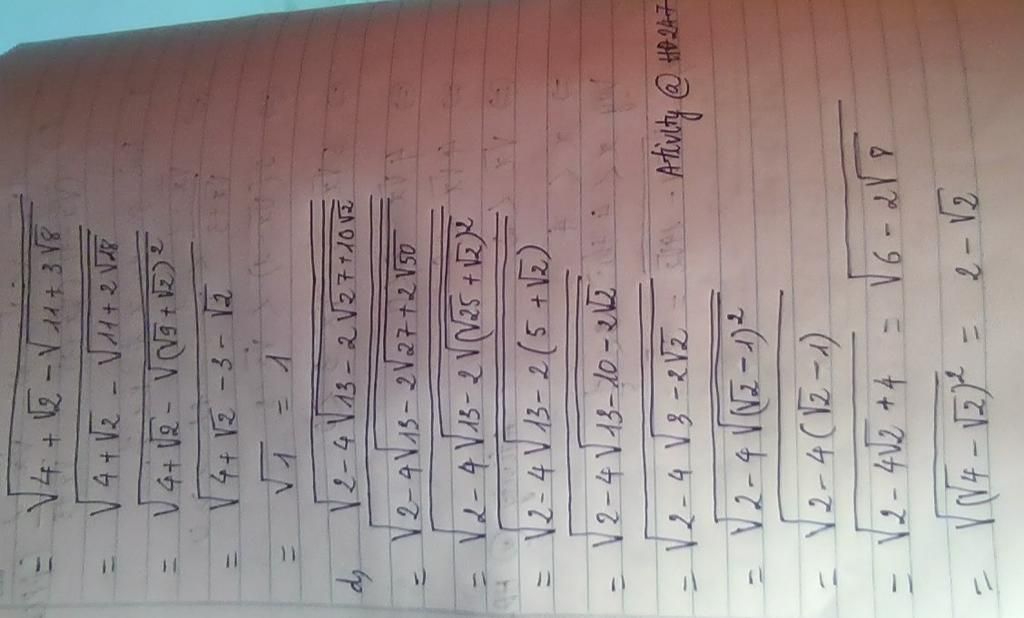 = √(4 + √2 - √(11 + 3√8))
= √(4 + √2 - √(11 + 2√18))
= √(4 + √2 - √((√9 + √2)²))
= √(4 + √2 - 3 - √2)
= √1 = 1
d, √(2 - 4√(13 - 2√(27 + 10√2)))
= √(2 - 4√(13 - 2√(27 + 2√50)))
= √(2 - 4√(13 - 2√((√25 + √2)²)))
= √(2 - 4√(13 - 2(5 + √2)))
= √(2 - 4√(13 - 10 - 2√2))
= √(2 - 4√(3 - 2√2)) Ativity @ HD247
= √(2 - 4√((√2 - 1)²))
= √(2 - 4(√2 - 1))
= √(2 - 4√2 + 4) = √(6 - 2√8)
= √((√4 - √2)²) = 2 - √2